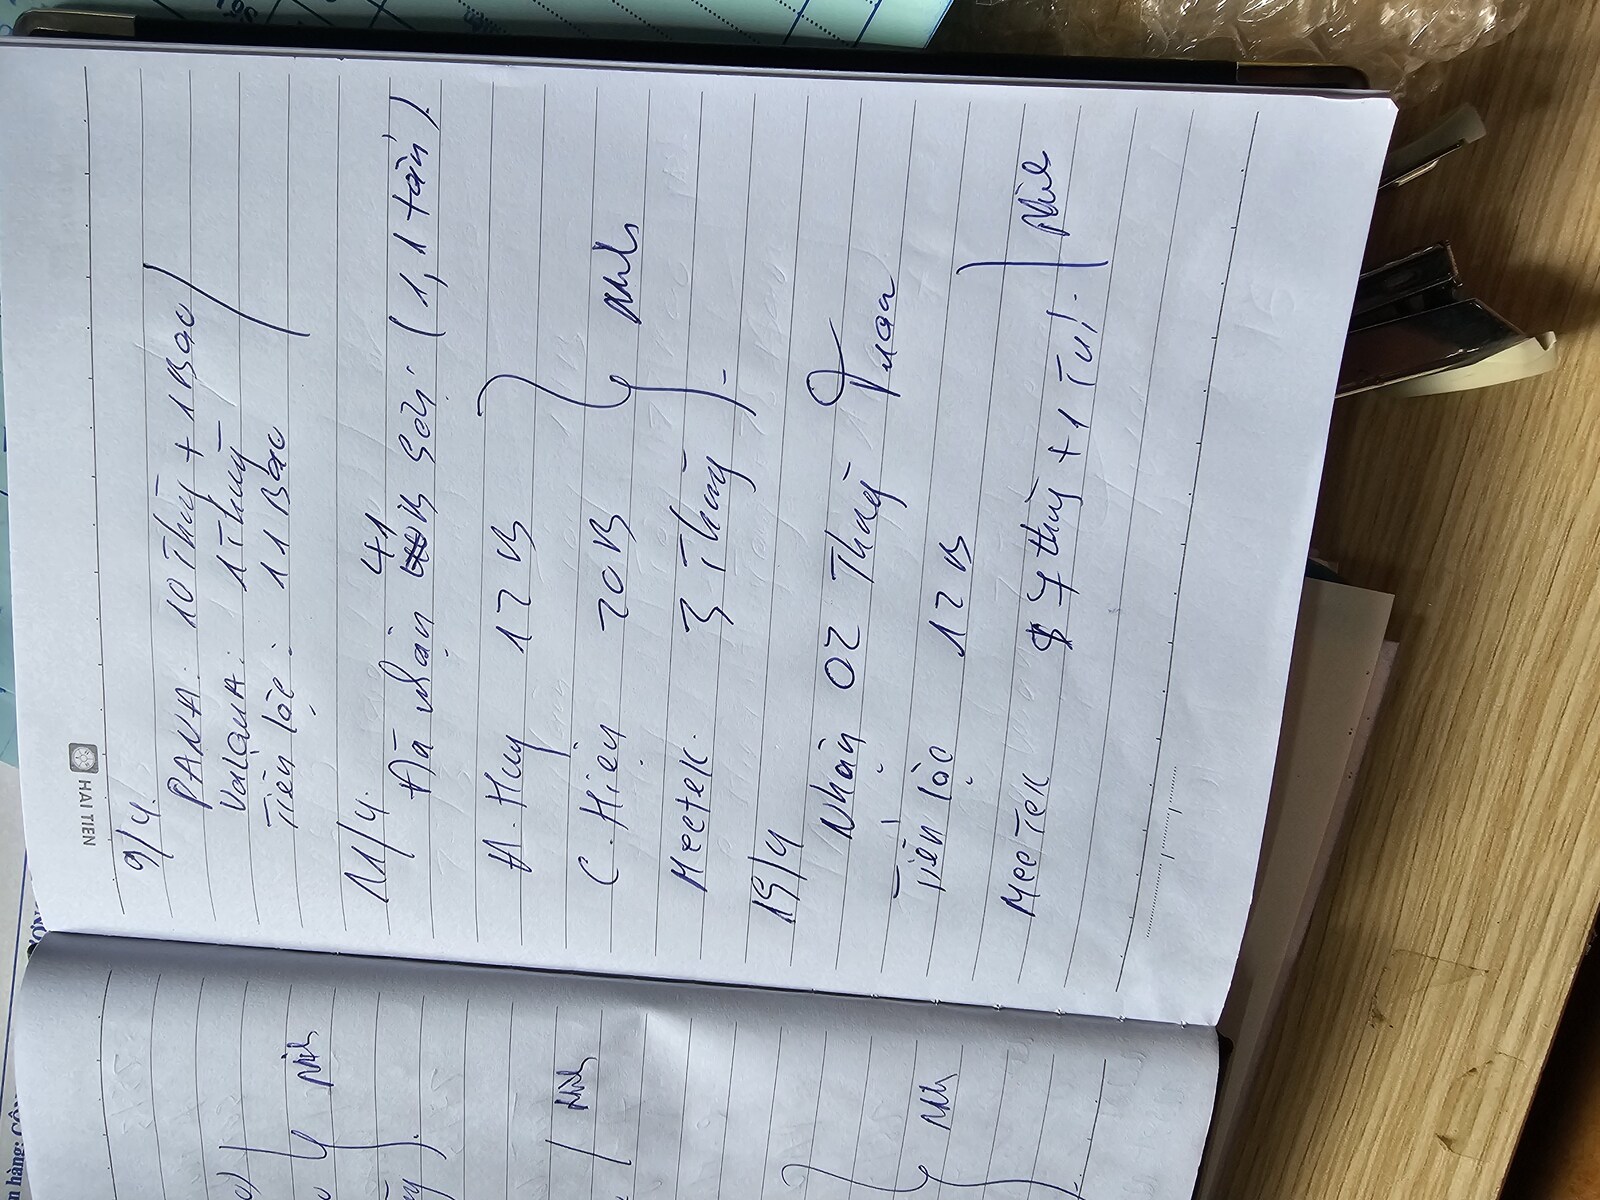 HẢI TIẾN
9/4.
PANA. 10 Thùng + 1 Bao
Valana. 1 Thùng
Tiến Lộc: 11 Bao
11/4.
41
Đã nhận B Sợi. (1,1 tấn).
A. Huy 12 B
C. Hiện 20 B
Meetek. 3 Thùng
Ninh
19/4
Nhận 02 Thùng Tuan
Tiến Lộc 12 B
Meetek 7 thùng + 1 Túi.
Ninh
Ninh
Ninh
Ninh